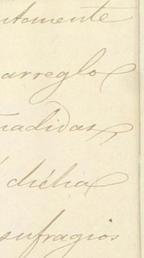 ntamente
arreglo
ñadidas,
dichia
sufragios